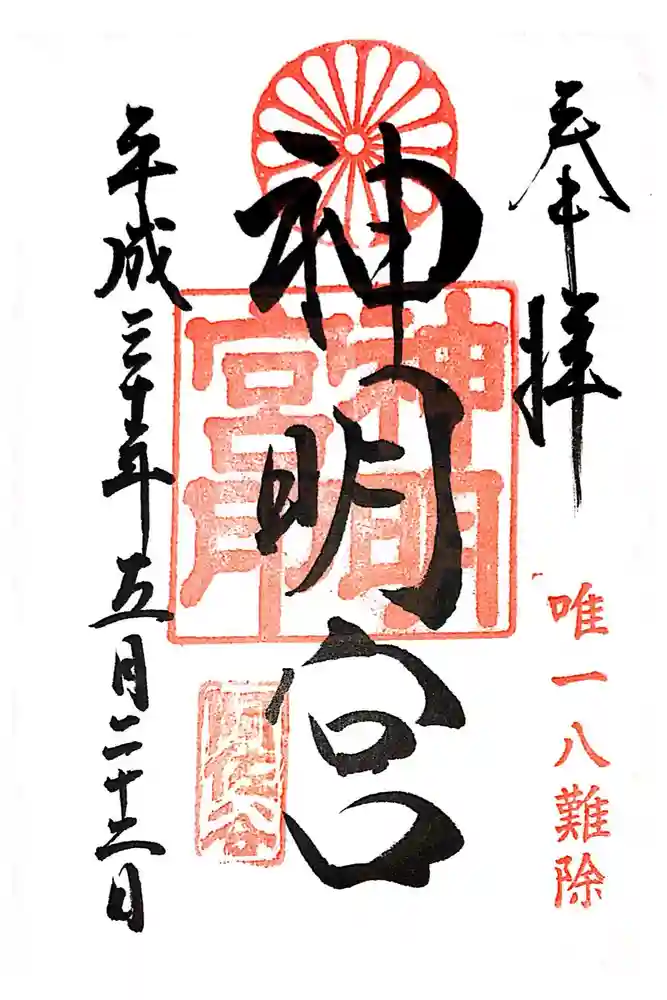 奉拝
唯一八難除
神明宮
神明宮印
平成三十年五月二十二日